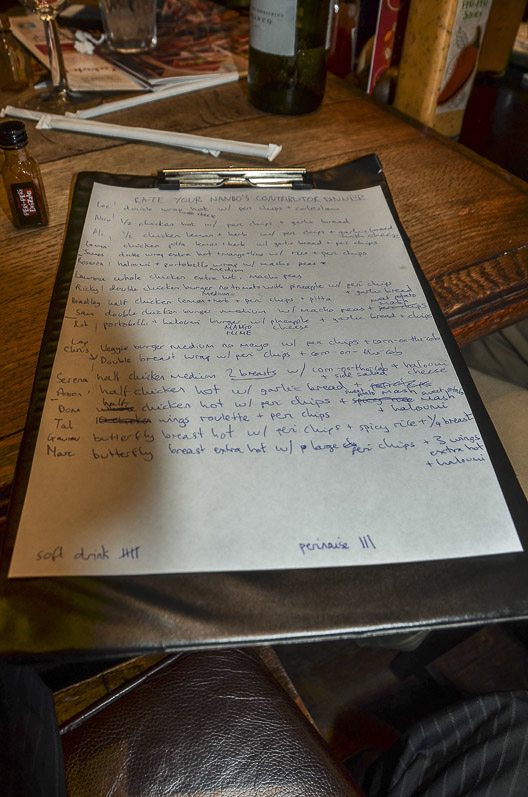 RATE YOUR NANDO'S CONTRIBUTOR DINNER
Lee: double wrap hot w/ peri chips + coleslaw
Nico: 1/2 chicken hot w/ peri chips + garlic bread
Al: 1/2 chicken lemon + herb w/ peri chips + garlic bread
chicken pitta lemon + herb w/ garlic bread + peri chips
James double wrap extra hot + w/ rice + peri chips
halloumi + portobello wrap w/ macho peas +
medium
Laurence whole chicken extra hot + macho peas
Ricky: double chicken burger no tomato with pineapple w/ peri chips
medium + garlic bread
Bradley half chicken lemon + hot + peri chips + pitta
sweet potato mash
Sam double chicken burger medium w/ macho peas +
Rob: portobello + halloumi burger w/ pineapple + garlic bread + chips
MANGO cheese
LIME
Veggie burger medium no mayo w/ peri chips + corn-on-the-cob
Chris: Double breast wrap w/ peri chips + corn-on-the-cob
Serena half chicken medium 2 breasts w/ corn-on-the-cob + halloumi
+ side salad cheese
half chicken hot w/ garlic bread + peri chips
Dom half chicken hot w/ peri chips + mash
+ halloumi
Tal wings roulette + peri chips
Gaurav butterfly breast hot w/ peri chips + spicy rice + 1/2 breast
Marc butterfly breast extra hot w/ large peri chips + 3 wings
extra hot
+ halloumi
soft drink
perinaise |||